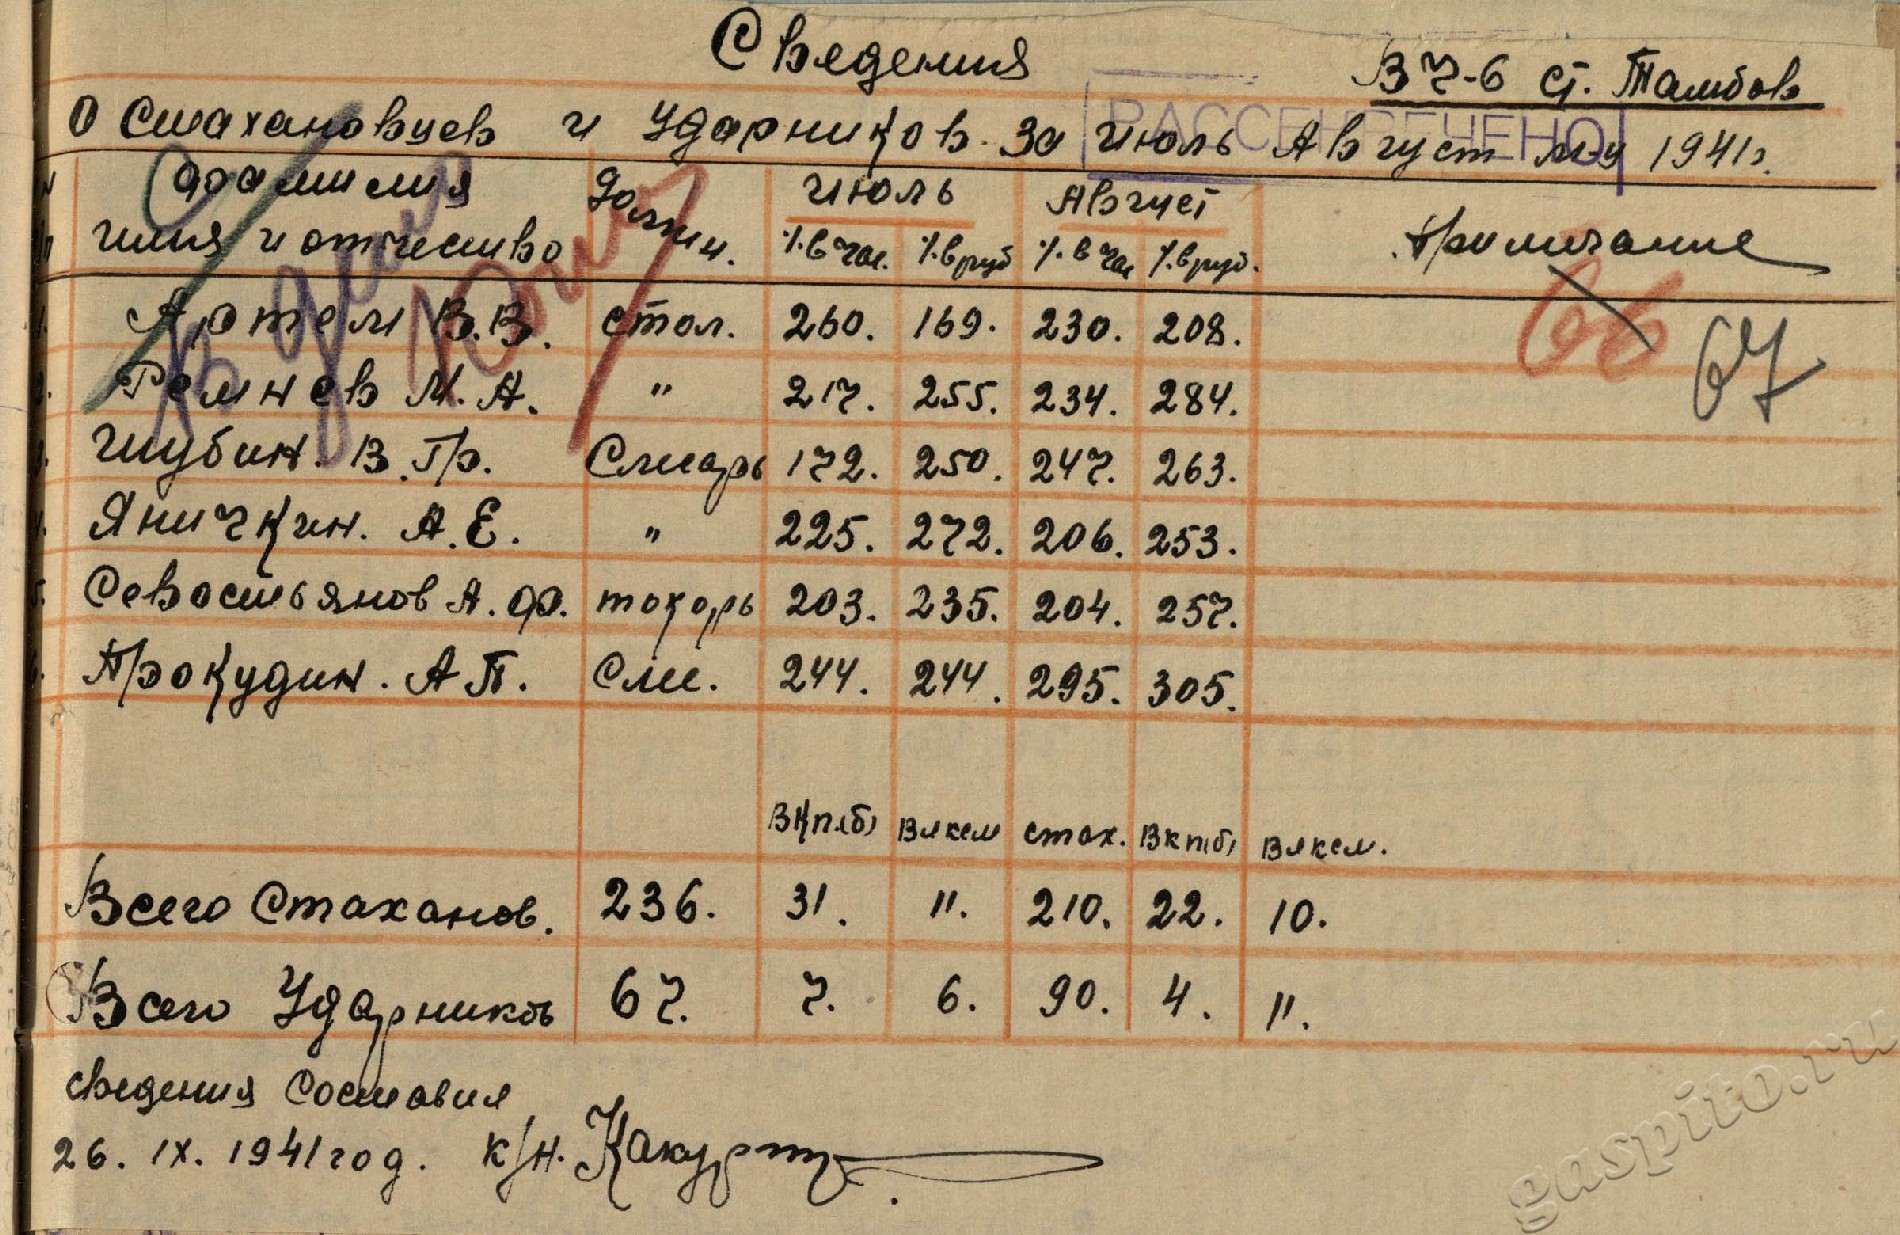 Сведения
ВЧ-6 ст. Тамбов
О Стахановцев и Ударников за Июль Август м-ц 1941г.
РАССЕКРЕЧЕНО
Фамилия имя и отчество Должн. Июль Август Примечание
% в час. % в руб % в час % в руб.
66 67
1. Артем В.В. стол. 260. 169. 230. 208.
2. Ремнев М.А. " 217. 255. 234. 284.
3. Шубин. В.Гр. Слесарь 172. 250. 247. 263.
4. Яничкин. А.Е. " 225. 272. 206. 253.
5. Севостьянов А.Ф. токарь 203. 235. 204. 257.
6. Прокудин. А П. Сле. 244. 244. 295. 305.
ВКП(б) Влксм стах. Вкп(б) Влксм.
Всего Стаханов. 236. 31. 11. 210. 22. 10.
Всего Ударников 67. 7. 6. 90. 4. 11.
сведения Составил
26. IX. 1941 год. К/Н.
gaspito.ru